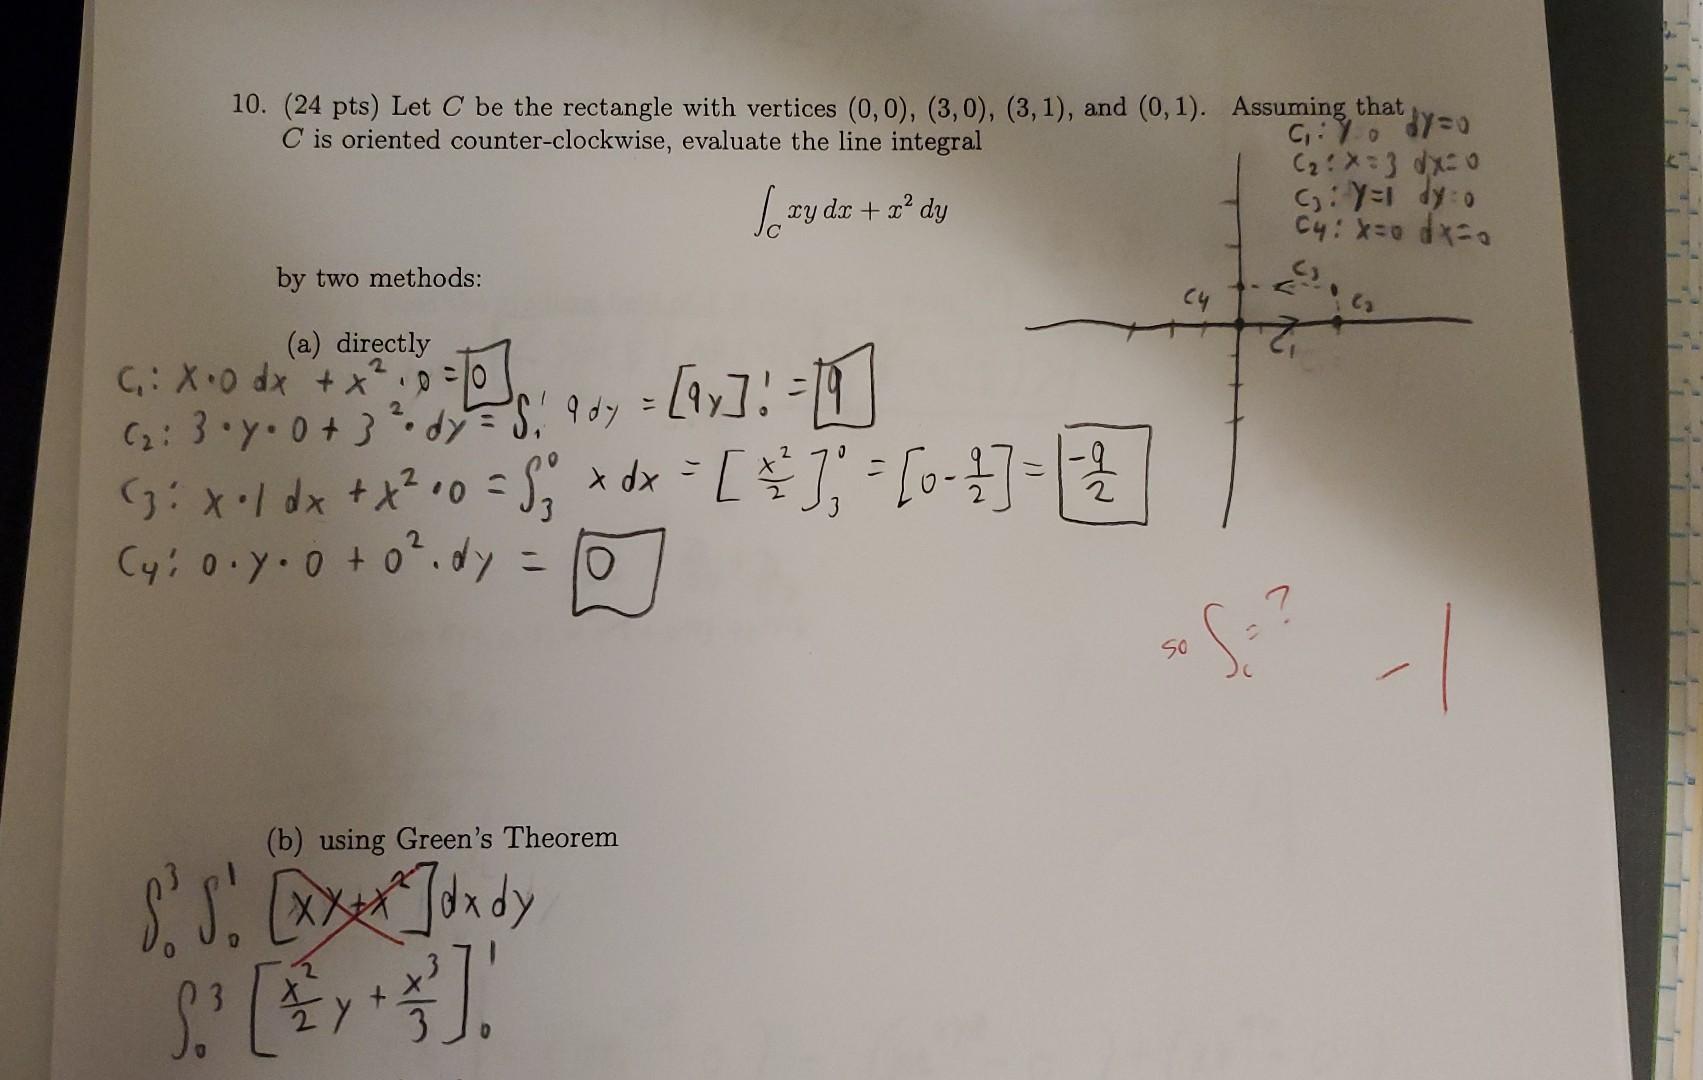 10. (24 pts) Let C be the rectangle with vertices (0, 0), (3, 0), (3, 1), and (0, 1). Assuming that
C is oriented counter-clockwise, evaluate the line integral
∫_C xy dx + x² dy
C₁: y=0 dy=0
C₂: x=3 dx=0
C₃: y=1 dy=0
C₄: x=0 dx=0
C₃
C₄
C₂
C₁
by two methods:
(a) directly
C₁: x·0 dx + x²·0 = 0
C₂: 3·y·0 + 3²·dy = ∫₁¹ 9 dy = [9y]₀¹ = 9
C₃: x·1 dx + x²·0 = ∫₃⁰ x dx = [x²/2]₃⁰ = [0 - 9/2] = -9/2
C₄: 0·y·0 + 0²·dy = 0
so ∫_C = ? -1
(b) using Green's Theorem
∫₀³ ∫₀¹ [xy+x²] dx dy
∫₀³ [x²/2 y + x³/3]₀¹